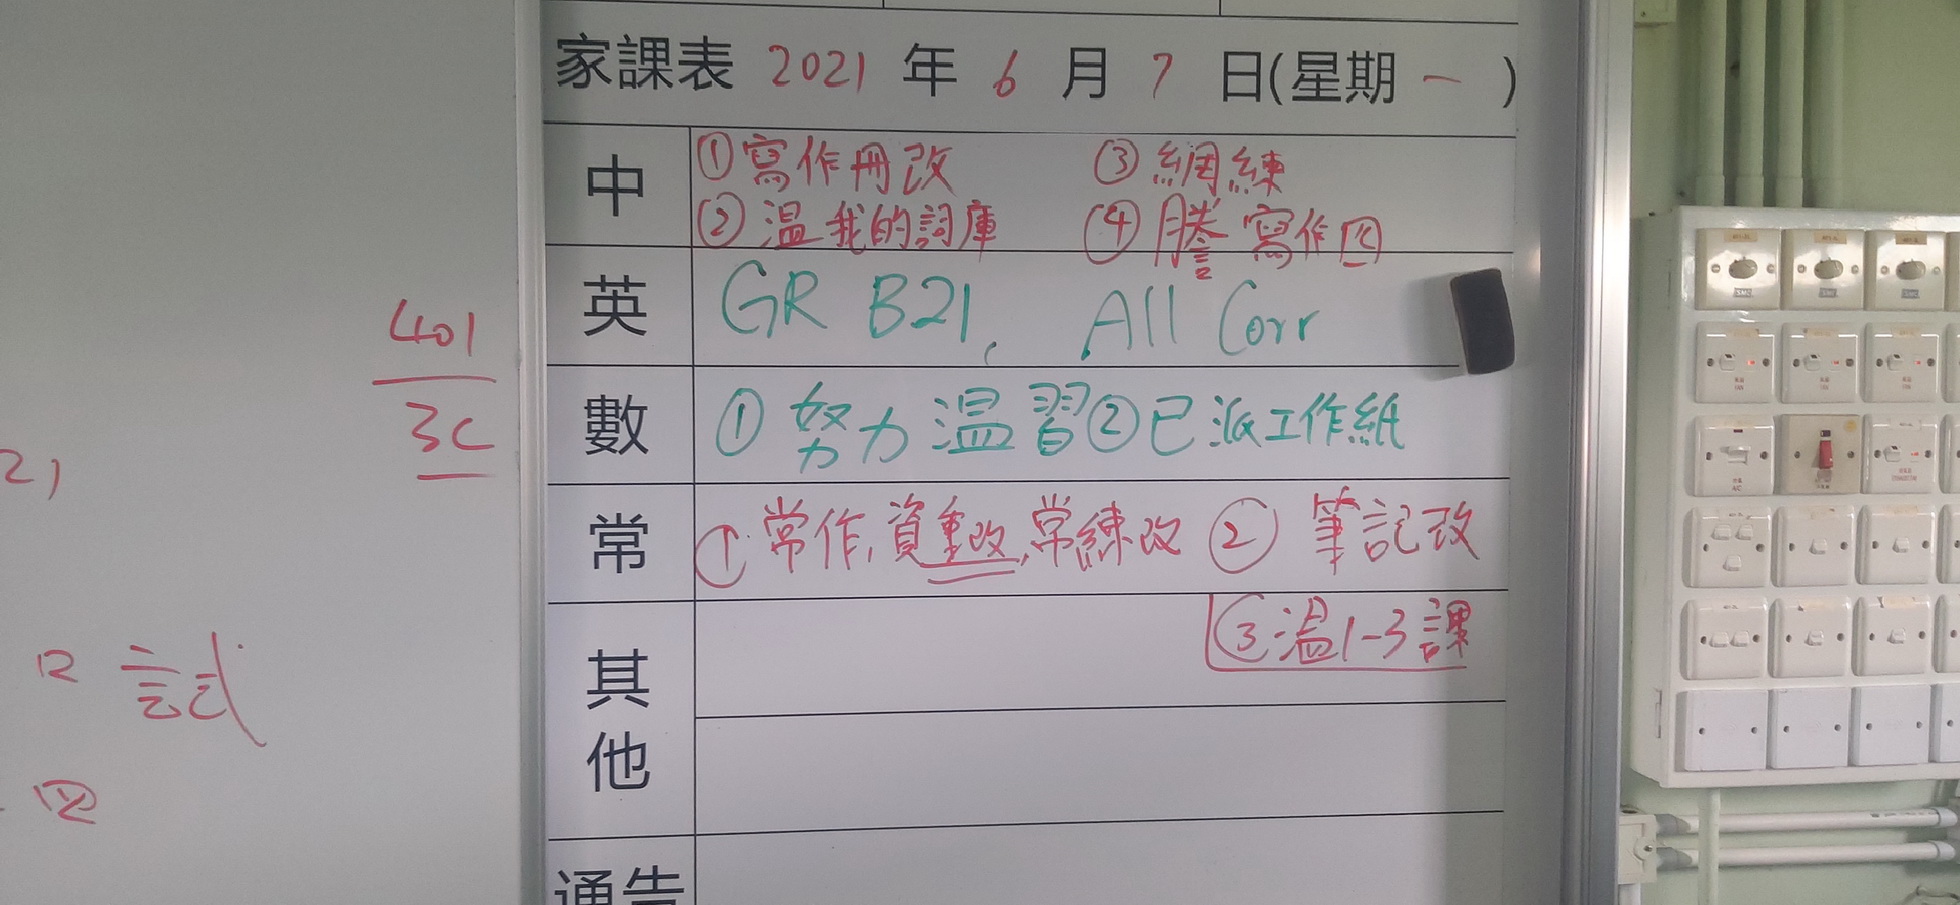 家課表 2021 年 6 月 7 日(星期一)
中
①寫作冊改 ③網練
②温我的詞庫 ④謄寫作四
英
GR B21, All Corr
數
①努力温習②已派工作紙
常
①常作,資重改,常練改 ②筆記改
③温1-3課
其他
通告
401
3C
21
試